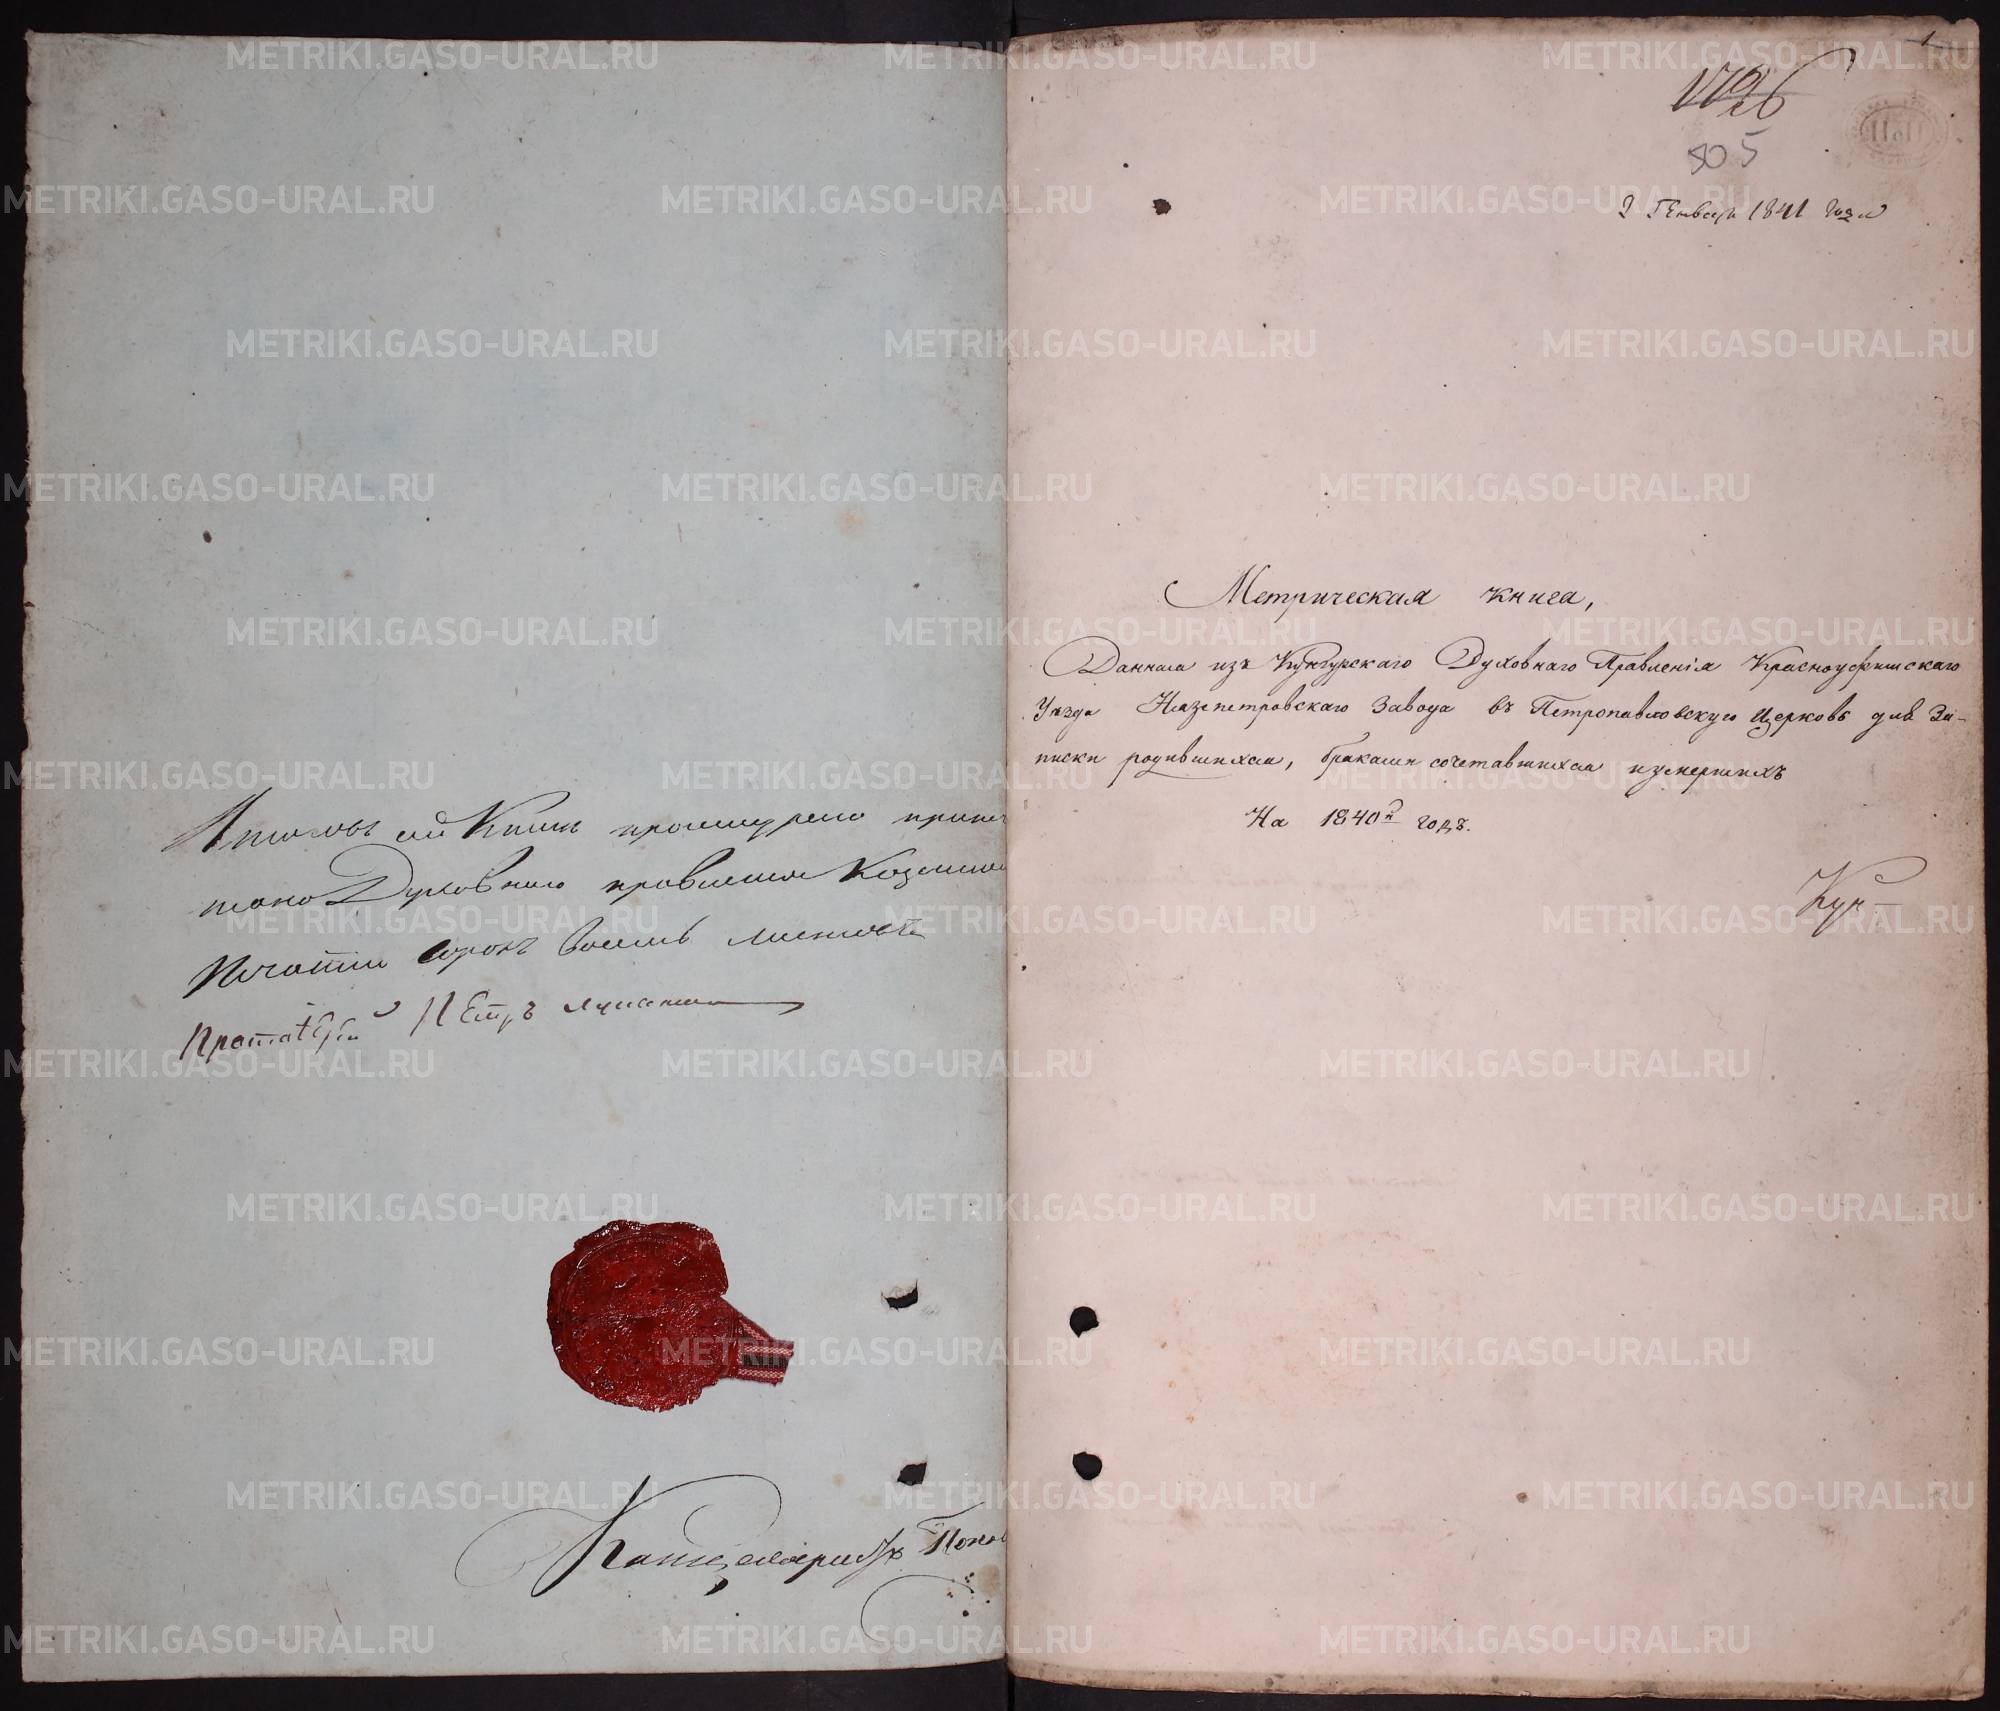 сей Книги прошнуро припеча
тано Духовнаго правленія Казенной
Печатью сорокъ восемь листовъ
Протоіерей Петръ
Канцеляристъ Попов
1
505
2 Генваря 1841 года
Метрическая книга,
Данная изъ Кунгурскаго Духовнаго Правленія Красноуфимскаго
Уѣзда Нязепетровскаго Завода въ Петропавловскую Церковь для За-
писки родившихся, бракомъ сочетавшихся и умершихъ
На 1840й годъ.
METRIKI.GASO-URAL.RU